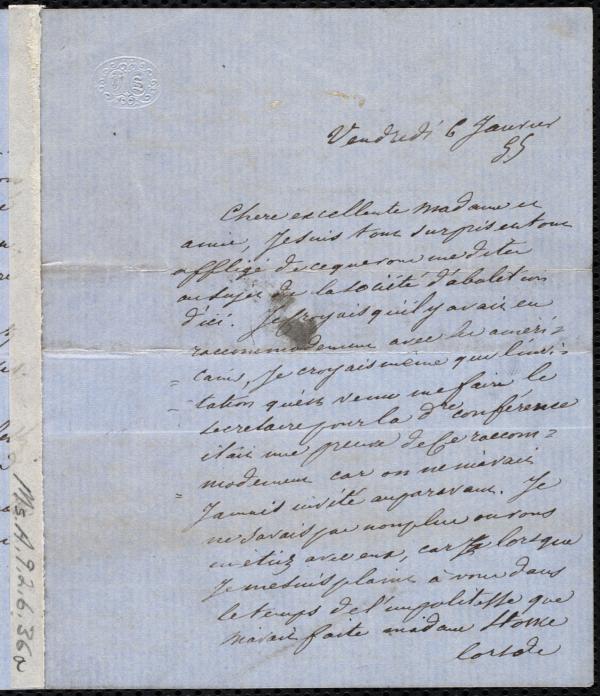 Vendredi 6 Janvier
55
Chere excellente Madame et
amie, Je suis tout surpris et tout
affligé de ce que vous me dites
au sujet de la Société d'abolition
d'ici. Je croyais qu'il y avait eu
raccommodement avec les améri-
-cains, Je croyais même que l'invi-
-tation qu'est venu me faire le
secretaire pour la dre conférence
était une preuve de ce raccom-
-modement car on ne m'avait
Jamais invité auparavant. Je
ne savais pas non plus où vous
en étiez avec eux, car lorsque
Je me suis plaint à vous dans
le temps de l'impolitesse que
m'avait faite madame Stowe
lors de
Ms.A.9.2.6.36a